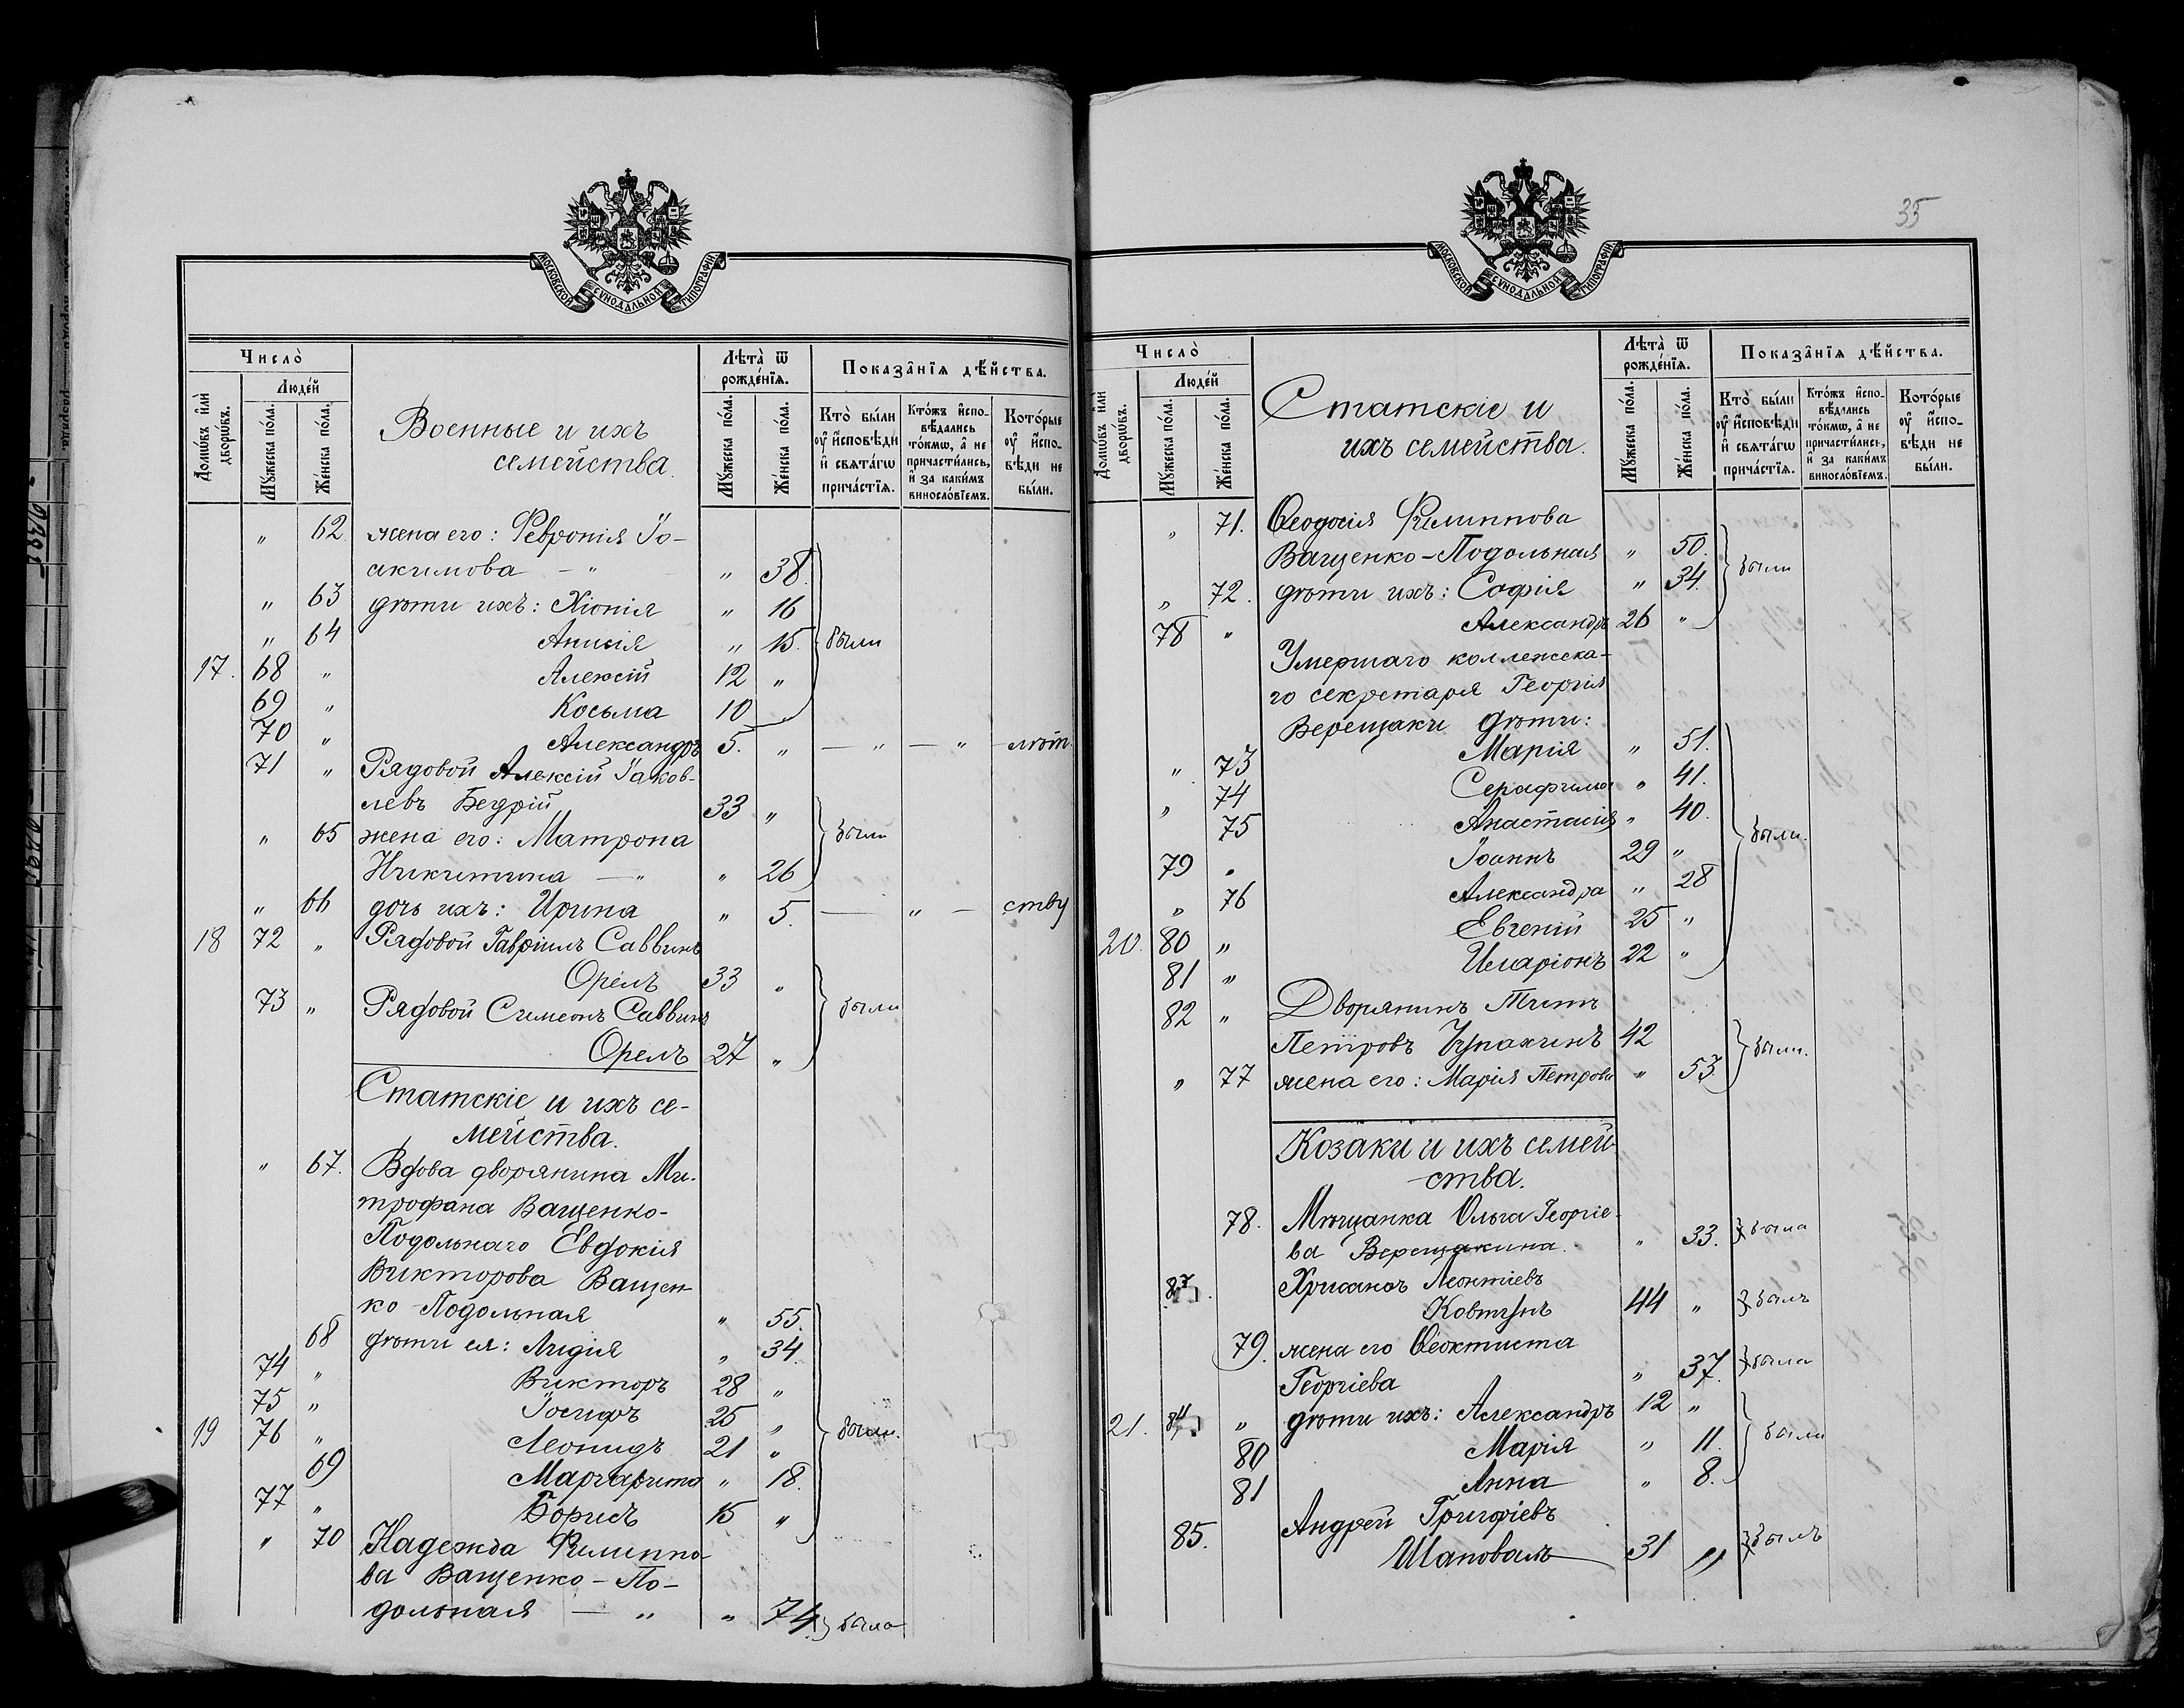 МОСКОВСКОЙ СѴНОДАЛЬНОЙ ТИПОГРАФІИ
Число̀
Домѡ́въ и҆лѝ дворѡ́въ.
Люде́й
Мꙋ́жеска по́ла.
Же́нска по́ла.
Военные и ихъ
семейства.
Лѣта̀ ѿ рожде́нїѧ.
Мꙋ́жеска по́ла.
Же́нска по́ла.
Показа̑нїѧ дѣ́йства.
Кто̀ бы́ли ᲂу҆ и҆сповѣ́ди и҆ свѧта́гѡ прича́стїѧ.
Кто́жъ и҆сповѣ́дались то́кмѡ, а҆ не причасти́лись, и҆ за каки́мъ виносло́вїемъ.
Кото́рые ᲂу҆ и҆сповѣ́ди не бы́ли.
" 62 жена его: Февронія Іо-
акимова — " " 38.
" 63 дѣти ихъ: Хіонія " 16
" 64 Анисія " 15. были
17. 68 " Алексій 12 "
69 " Косьма 10
70 " Александръ 5. " — " — " — лѣт
71 " Рядовой Алексій Іаков-
левъ Бедрій 33 "
" 65 жена его: Матрона были
Никитина — " " 26
" 66 дочь ихъ: Ирина " 5. — " — ству
18 72 " Рядовой Гавріилъ Саввинъ
Орелъ 33 "
73 " Рядовой Симеонъ Саввинъ были
Орелъ 27 "
Статскіе и ихъ се-
мейства.
" 67. Вдова дворянина Ми-
трофана Ващенко-
Подольнаго Евдокія
Викторова Ващен-
ко-Подольная " 55.
68 дѣти ея: Лидія " 34.
74 " Викторъ 28 "
75 " Іосифъ 25 "
19 76 " Леонидъ 21 " были.
69 Маргарита " 18.
77 " Борисъ 15 "
" 70 Надежда Филиппо-
ва Ващенко-По-
дольная — " " 74. была
35
МОСКОВСКОЙ СѴНОДАЛЬНОЙ ТИПОГРАФІИ
Число̀
Домѡ́въ и҆лѝ дворѡ́въ.
Люде́й
Мꙋ́жеска по́ла.
Же́нска по́ла.
Статскіе и
ихъ семейства.
Лѣта̀ ѿ рожде́нїѧ.
Мꙋ́жеска по́ла.
Же́нска по́ла.
Показа̑нїѧ дѣ́йства.
Кто̀ бы́ли ᲂу҆ и҆сповѣ́ди и҆ свѧта́гѡ прича́стїѧ.
Кто́жъ и҆сповѣ́дались то́кмѡ, а҆ не причасти́лись, и҆ за каки́мъ виносло́вїемъ.
Кото́рые ᲂу҆ и҆сповѣ́ди не бы́ли.
" 71. Ѳеодосія Филиппова
Ващенко-Подольная " 50.
" 72. дѣти ихъ: Софія " 34. были
78 " Александръ 26 "
Умершаго коллежска-
го секретаря Георгія
Верещаки дѣти:
" 73 Марія " 51.
" 74 Серафима " 41.
75 Анастасія " 40.
79 " Іоаннъ 29 " были.
" 76 Александра " 28
20. 80 " Евгеній 25 "
81 " Иларіонъ 22 "
82 " Дворянинъ Титъ
Петровъ Чупахинъ 42 были.
" 77 жена его: Марія Петрова " 53
Козаки и ихъ семей-
ства.
78. Мѣщанка Ольга Георгіе-
ва Верещакина. " 33. была
Хрисанѳъ Леонтіевъ
Ковтунъ 44 " былъ
79. жена его Ѳеоктиста
Георгіева " 37. была
21. 84 " дѣти ихъ: Александръ 12 "
80 Марія " 11. были
81 Анна " 8.
85. Андрей Григоріевъ
Шаповалъ 31 " былъ